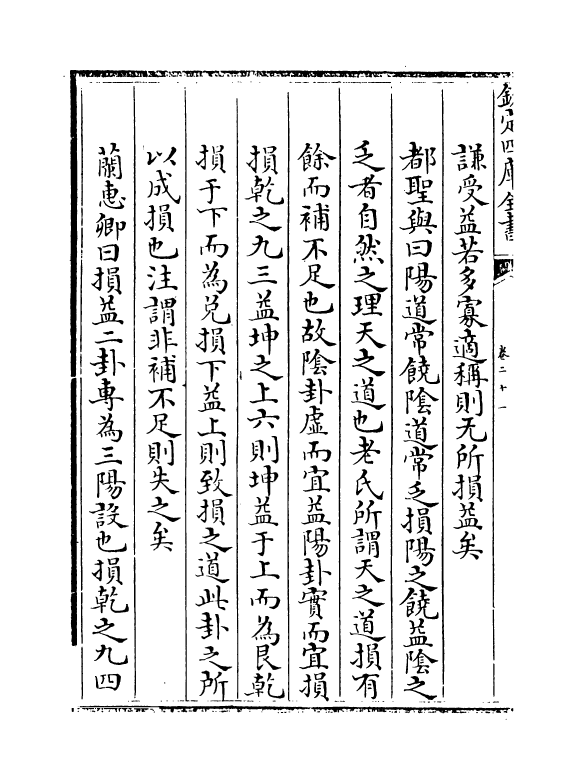 欽定四庫全書
卷二十一
謙受益若多寡適稱則无所損益矣
都聖與曰陽道常饒陰道常乏損陽之饒益陰之
乏者自然之理天之道也老氏所謂天之道損有
餘而補不足也故陰卦虛而宜益陽卦實而宜損
損乾之九三益坤之上六則坤益于上而為艮乾
損于下而為兌損下益上則致損之道此卦之所
以成損也注謂非補不足則失之矣
蘭惠卿曰損益二卦専為三陽設也損乾之九四